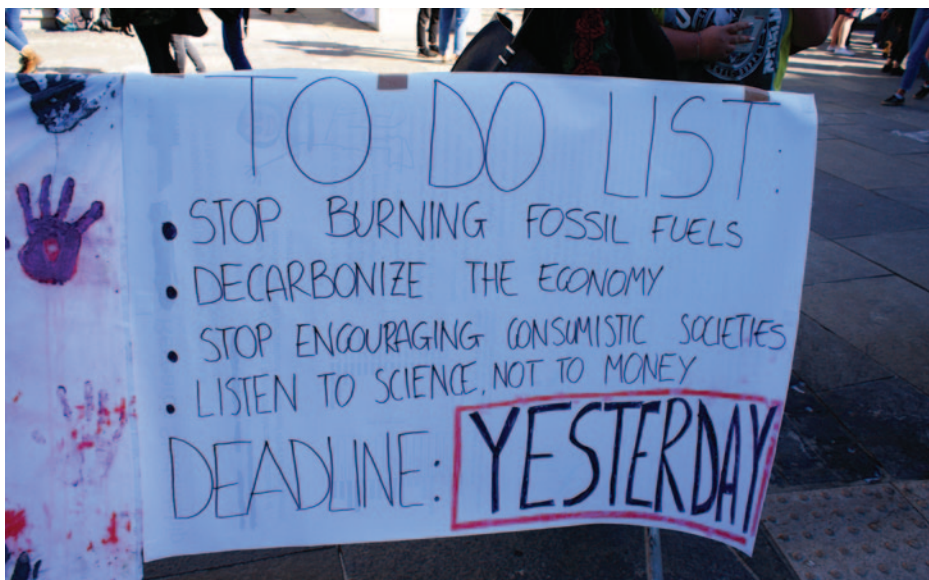 TO DO LIST:
• STOP BURNING FOSSIL FUELS
• DECARBONIZE THE ECONOMY
• STOP ENCOURAGING CONSUMISTIC SOCIETIES
• LISTEN TO SCIENCE, NOT TO MONEY
DEADLINE: YESTERDAY